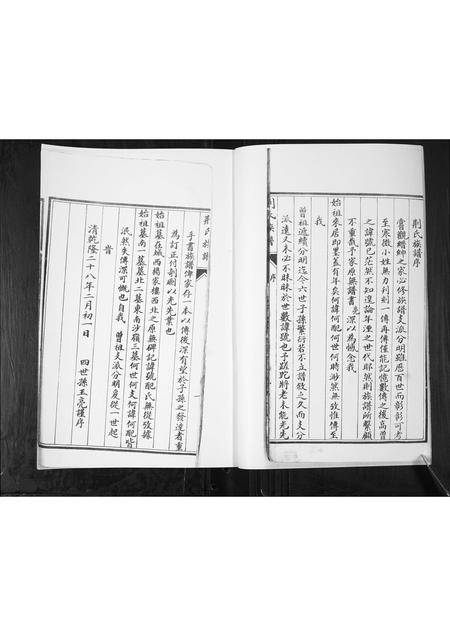 荆氏族譜序
嘗觀縉紳之家必修族譜支派分明雖歷百世而彰彰可考
至寒微小姓無力刊刻一傳再傳僅能記憶數傳之後高曾
之諱號已茫然不知遑論年湮之世代耶然則族譜所繫顧
不重哉予家原無譜書亮深以為憾念我
始祖來居即墨蓋有年矣何諱何配何世何時渺然無攷惟傳至
我
曾祖遞續分明迄今六世子孫繁衍若不立譜攷之久而支分
派遠又未必不昧昧於世數諱號也予蹉跎將老未能光先
荆氏族譜
序
手書族譜傳家存一本以傳後深有望於子孫之發達者重
為訂正付剞劂以光先業也
始祖墓在城西楊家樓西北之原無碑記諱號配氏無從攷據
始祖墓南一墓墓北二墓東南沙嶺三墓何世何支何諱何配皆
泯然失傳深可慨也自我 曾祖支派分明度從一世起
旹
清乾隆二十八年二月初一日
四世孫玉亮謹序
荆氏族譜